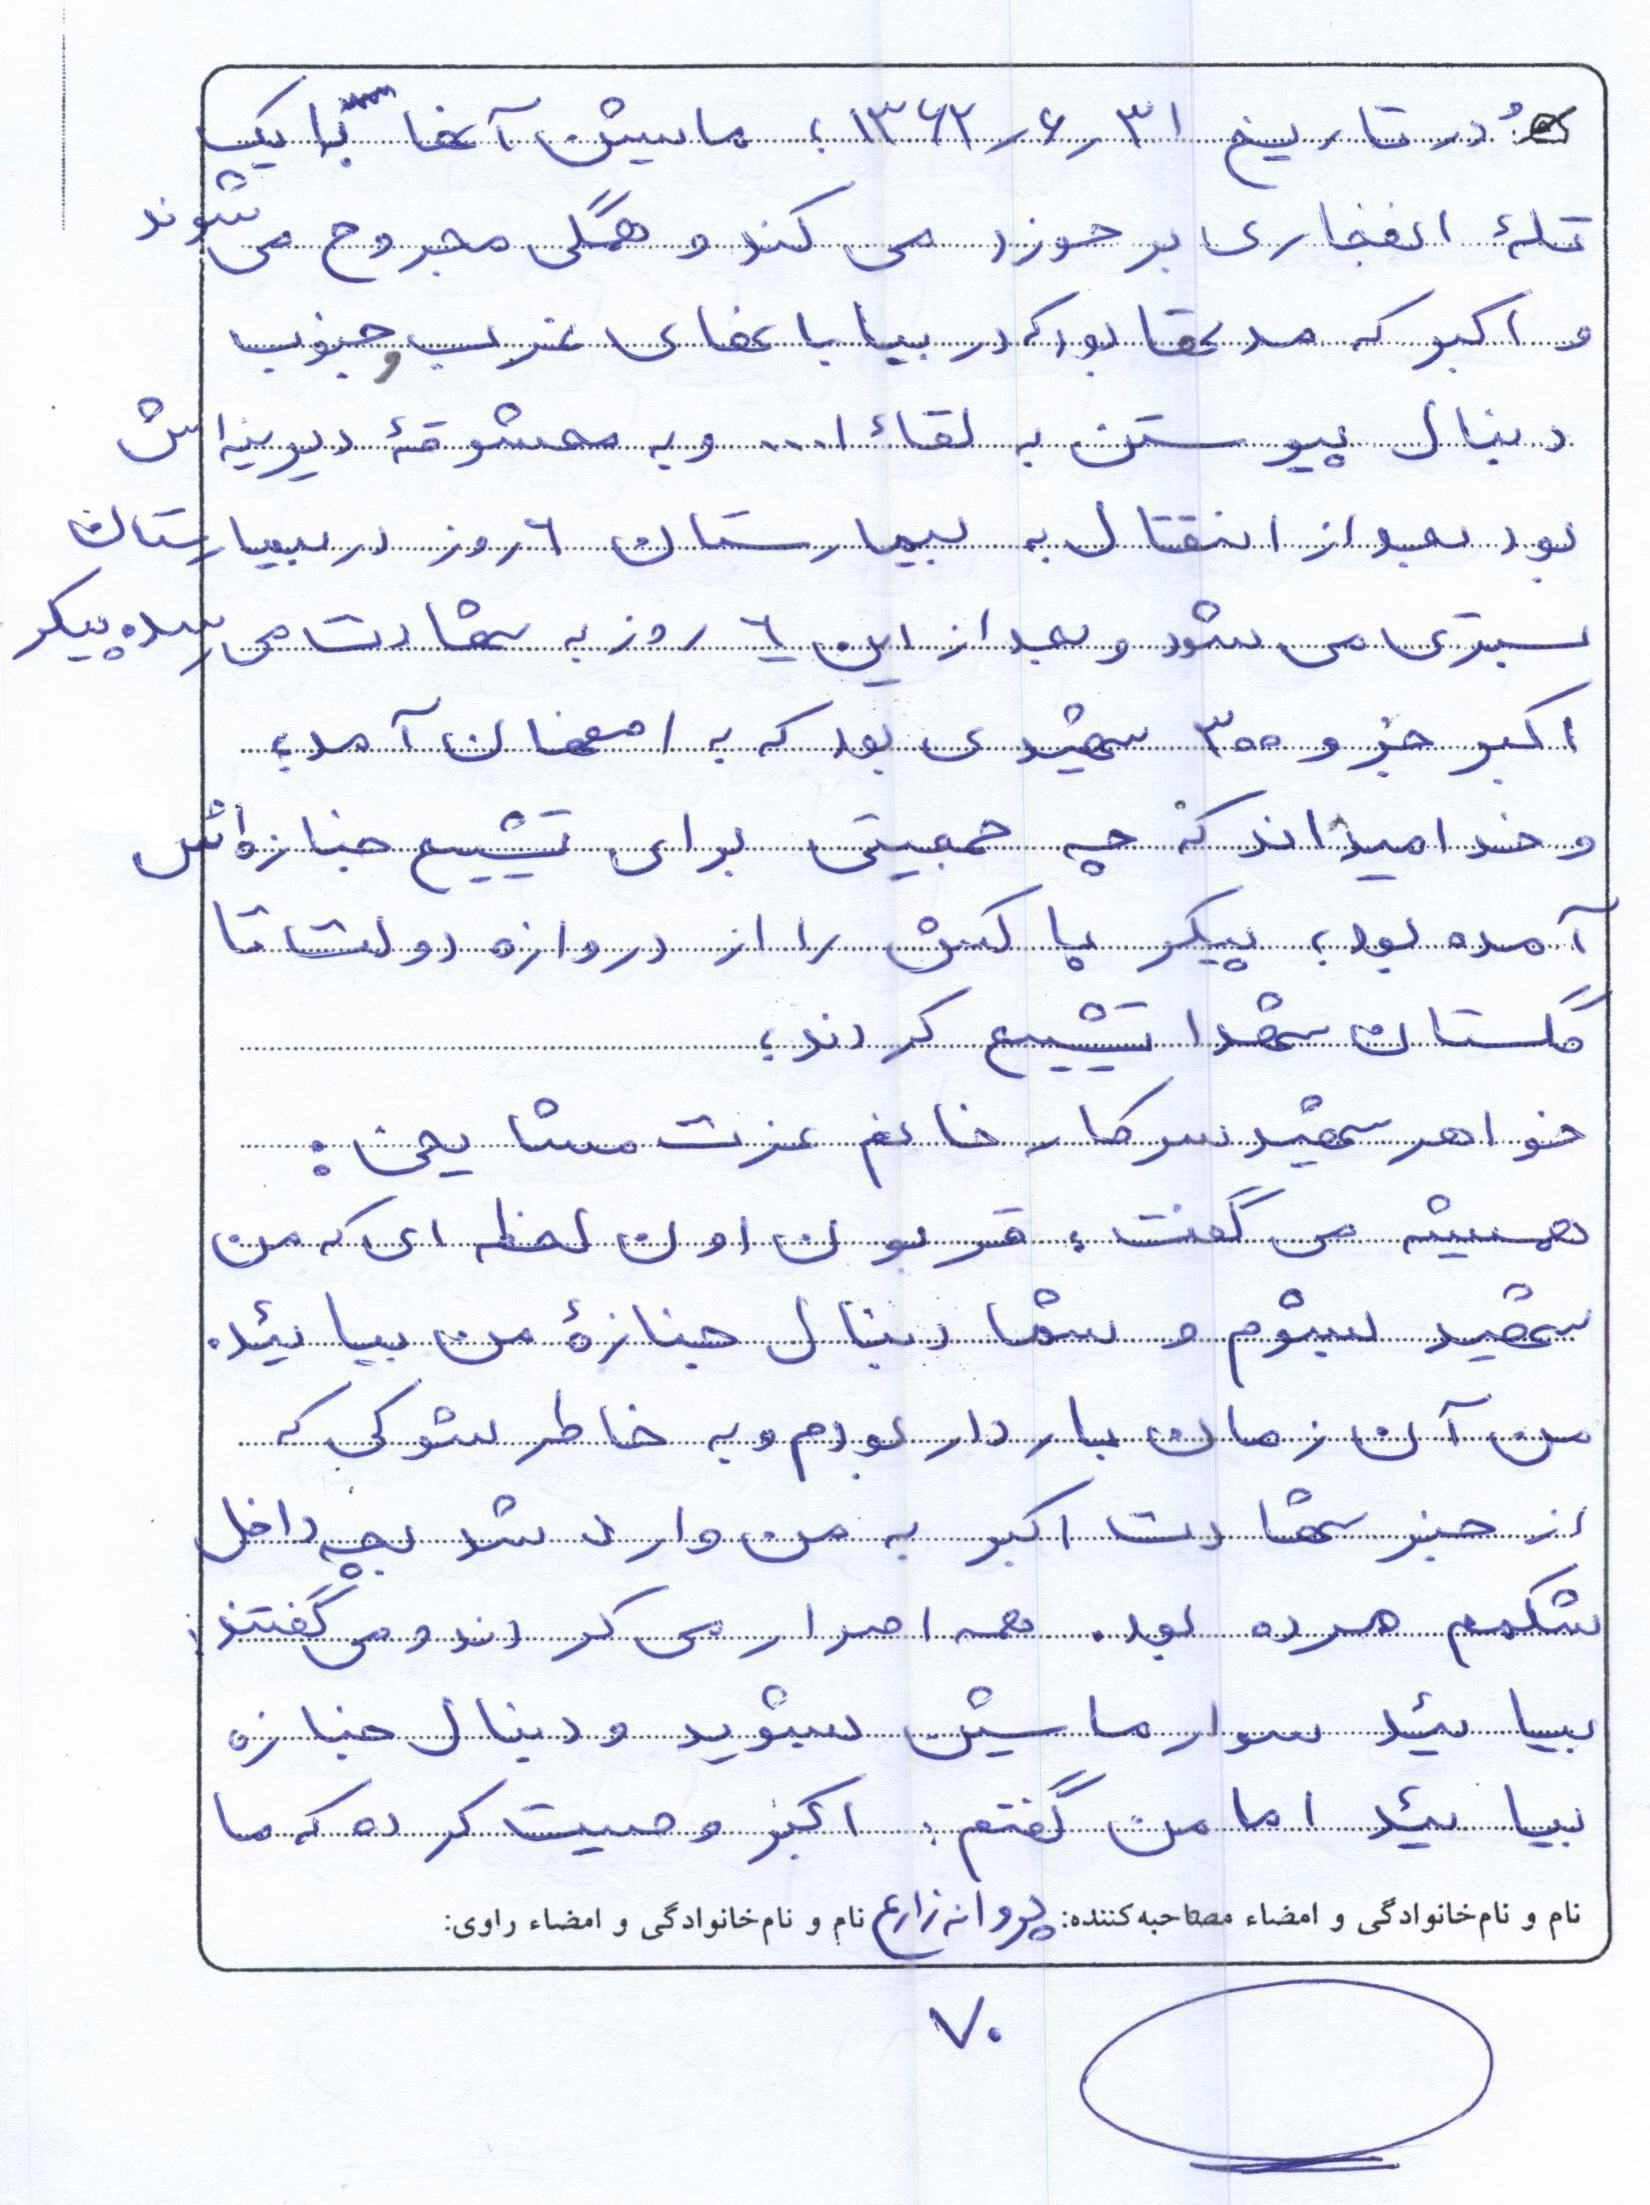 در تاریخ ۳۱ ر ۶ ر ۱۳۶۲؛ ماشین آنها با یک
تلهٔ انفجاری برخورد می کند و همگی مجروح می شوند
و اکبر که مدتها بود که در بیابانهای غرب و جنوب
دنبال پیوستن به لقاء ا... و به معشوقهٔ دیرینه اش
بود بعد از انتقال به بیمارستان ۶ روز در بیمارستان
بستری می شود و بعد از این ۶ روز به شهادت می رسد، پیکر
اکبر جزو ۳۰۰ شهیدی بود که به اصفهان آمد؛
و خدا میداند که چه جمعیتی برای تشییع جنازه اش
آمده بود؛ پیکر پاکش را از دروازه دولت تا
گلستان شهدا تشییع کردند؛
خواهر شهید سرکار خانم عزت مشایخی:
همیشه می گفت: قربون اون لحظه ای که من
شهید بشوم و شما دنبال جنازهٔ من بیائید.
من آن زمان باردار بودم و به خاطر شوکی که
از خبر شهادت اکبر به من وارد شد بچه داخل
شکمم مرده بود. همه اصرار می کردند و می گفتند:
بیائید سوار ماشین بشوید و دنبال جنازه
بیائید اما من گفتم: اکبر وصیت کرده که ما
نام و نام‌خانوادگی و امضاء مصاحبه‌کننده: پروانه زارع نام و نام‌خانوادگی و امضاء راوی:
۷۰